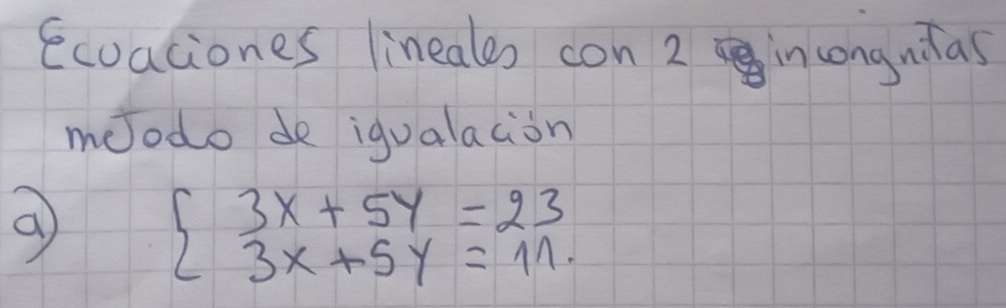 Ecuaciones lineales con 2 incongnitas
metodo de igualación
a) { 3x + 5y = 23
3x + 5y = 11.